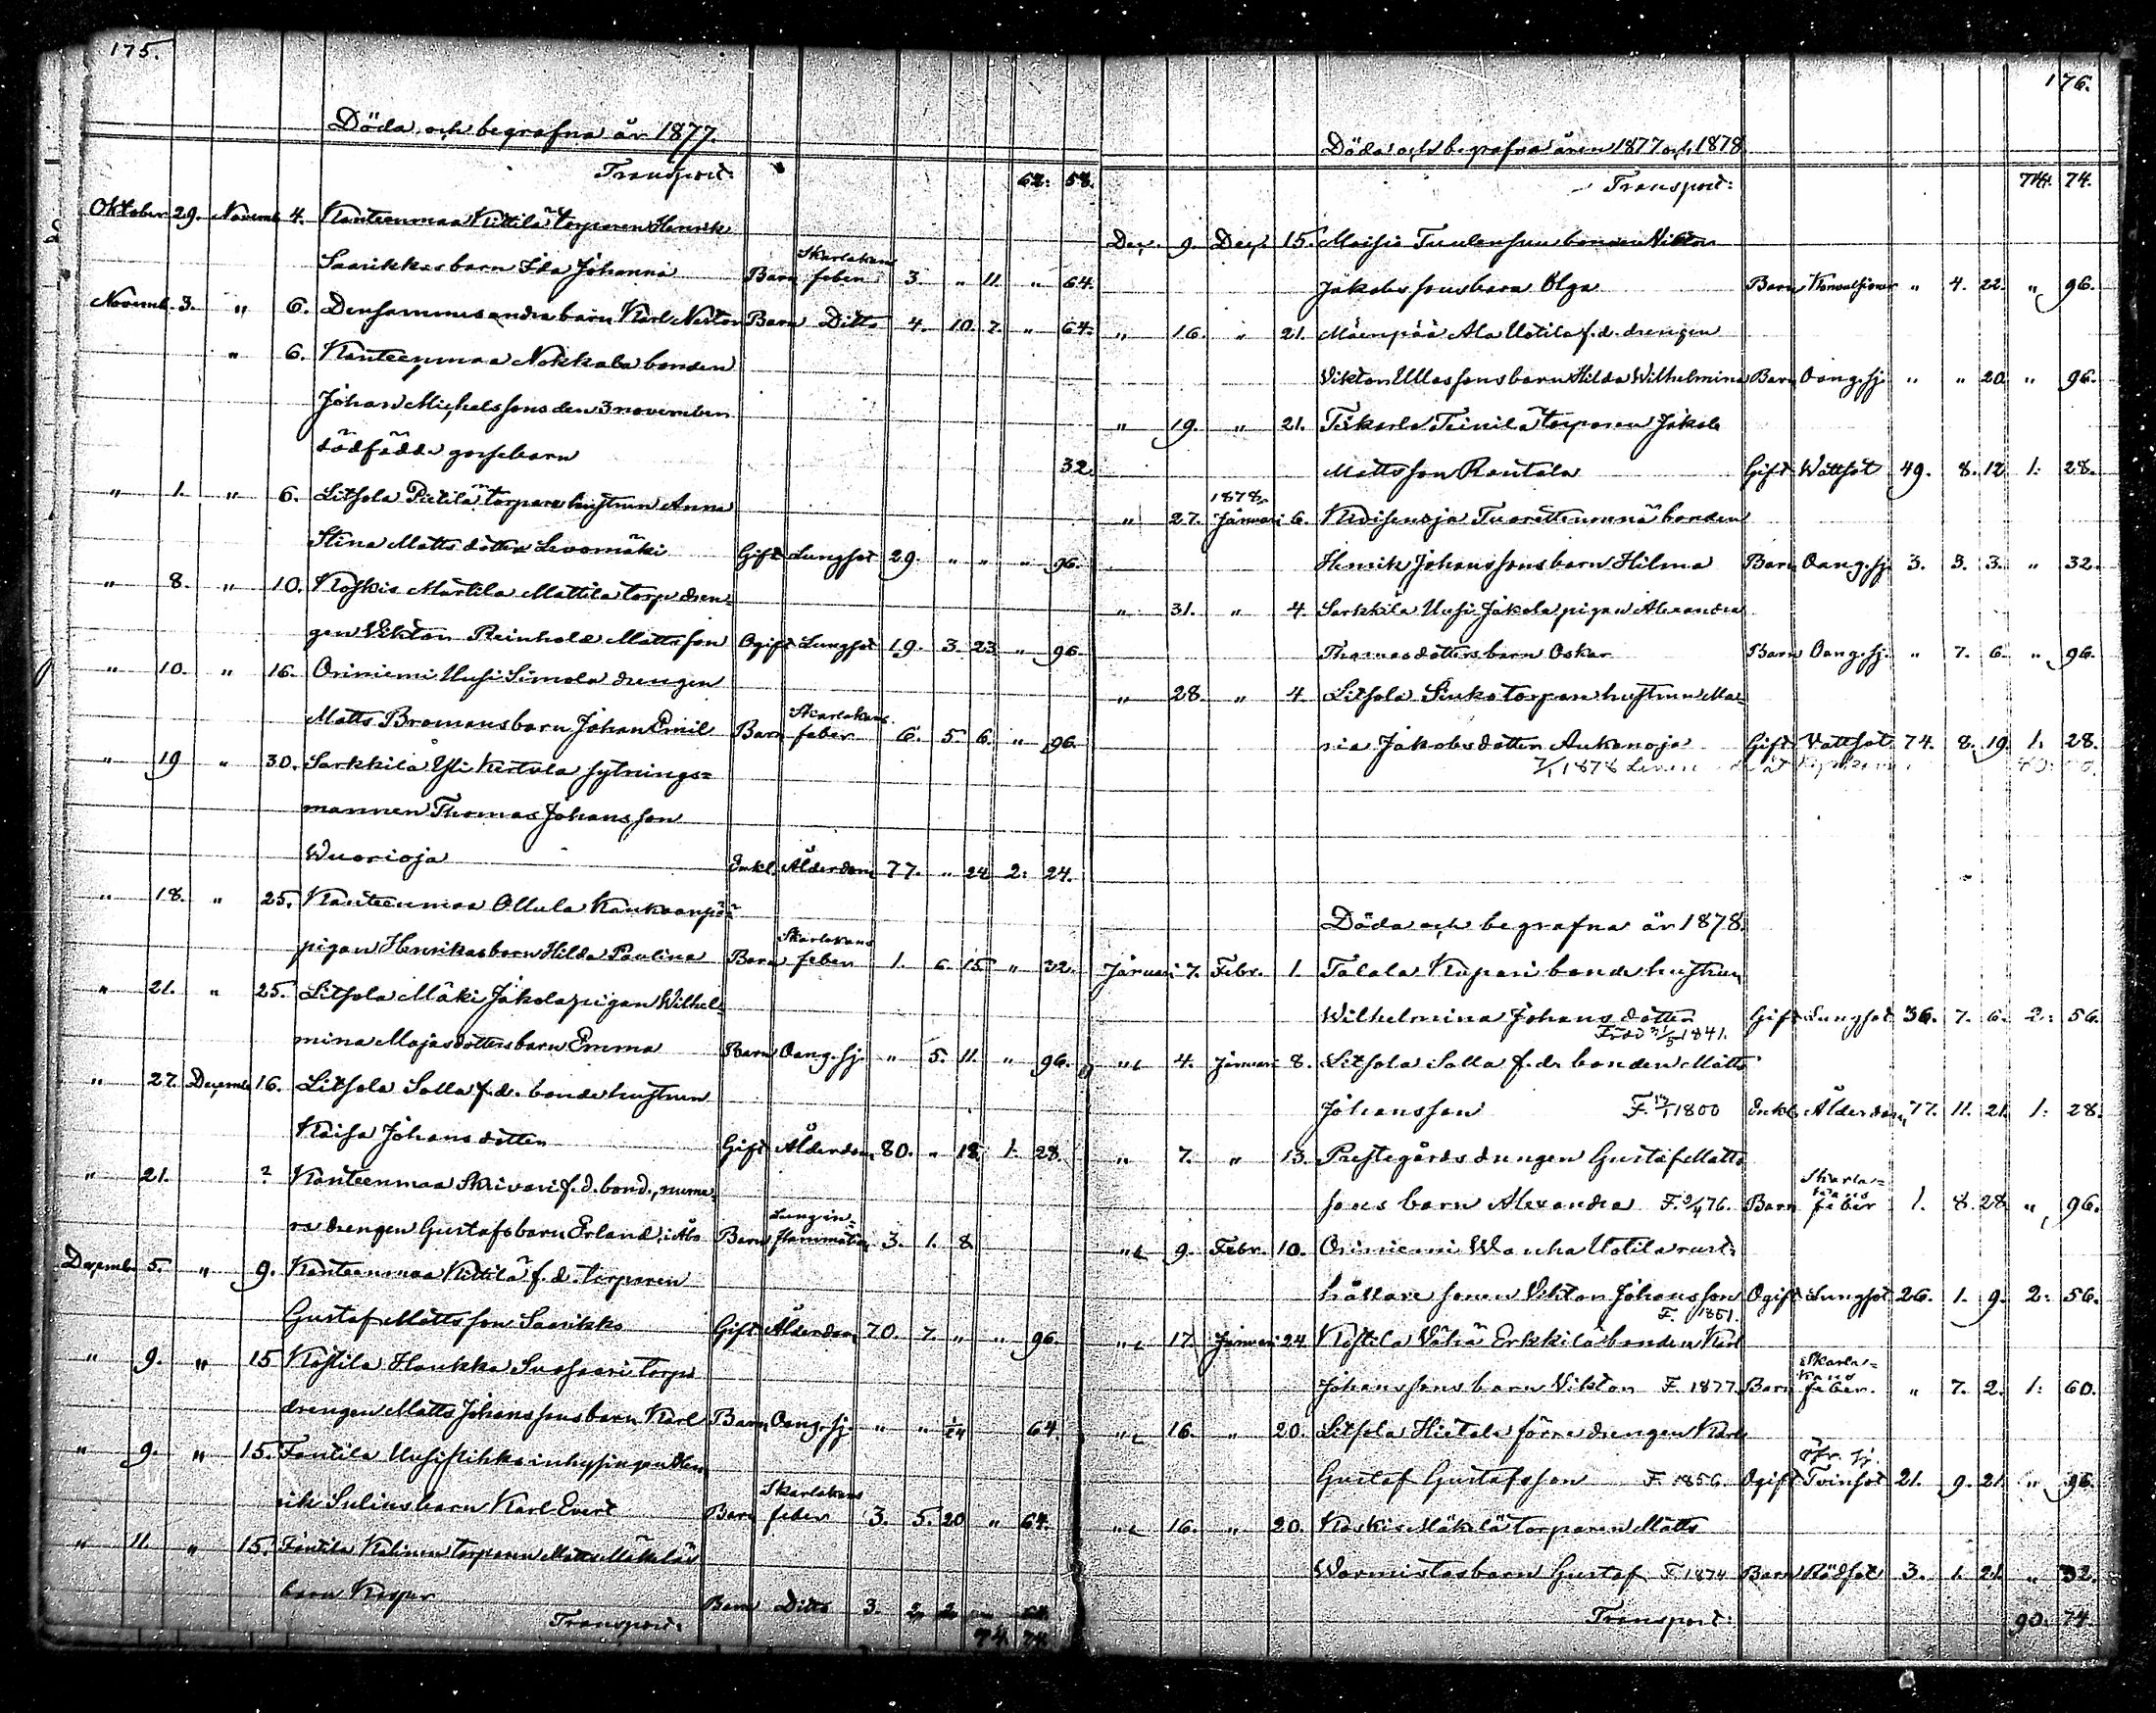 175.
Döda och begrafna år 1877.
Transport: 62: 58.
Oktober 29. Novemb. 4. Kanteenmaa Kittilä torparen Henrik
Saarikkas barn Ida Johanna Barn Skarlakans feber 3. „ 11. „ 64.
Novemb. 3. „ 6. Densammes andra barn Karl Nestor Barn Ditto 4. 10. 7. „ 64.
„ 6. Kanteenmaa Nokkala bonden
Johan Michelssons den 3 november
dödfödde gossebarn 32.
„ 1. „ 6. Litsola Pietilä torparehustrun Anna
Stina Mattsdotter Levomäki Gift Lungsot 29. „ „ „ 96.
„ 8. „ 10. Koskis Martila Mattila torp. dren-
gen Viktor Reinhold Mattsson Ogift Lungsot 19. 3. 23. „ 96.
„ 10. „ 16. Oriniemi Uusi Simola drengen
Matts Bromans barn Johan Emil Barn Skarlakans feber 6. 5. 6. „ 96.
„ 19 „ 30. Sarkkila Yli Kertola sytnings=
mannen Thomas Johansson
Wuorioja Enkl. Ålderdom 77. „ 24 2: 24.
„ 18. „ 25. Kanteenmaa Ollula Kankaanpää
pigan Henrikas barn Hilda Paulina Barn Skarlakans feber 1. 6. 15. „ 32.
„ 21. „ 25. Litsola Mäki Jakola pigan Wilhel-
mina Majasdotters barn Emma Barn Oang. sj. „ 5. 11. „ 96.
„ 27. Decemb. 16. Litsola Salla f.d. bondehustrun
Kaisa Johansdotter Gift Ålderdom 80. „ 18. 1. 28.
„ 21. ? Kanteenmaa Skrivari f.d. bond., nume-
ra drengen Gustafs barn Erland, i Åbo Barn Lungin= flammation 3. 1. 8.
Decemb. 5. „ 9. Kanteenmaa Kittilä f.d. torparen
Gustaf Mattsson Saarikko Gift Ålderdom 70. 7. „ „ 96.
„ 9. „ 15 Kostila Haukka torp.
drengen Matts Johanssons barn Karl Barn Oang. sj. „ „ 1/24 64.
„ 9. „ 15. inhysingen Hen
rik barn Karl Evert Barn Skarlakans feber 3. 5. 20 „ 64.
„ 11. „ 15. torparen Matts Mäkeläs
barn Kasper Barn Ditto 3. 2. 2.
Transport: 74. 74.
176.
Döda och begrafna åren 1877 och 1878
Transport: 74. 74.
Dec. 9. Dec. 15. Moisio Tuulensuu bonden Viktor
Jakobssons barn Olga Barn Konvulsioner „ 4. 22. „ 96.
„ 16. „ 21. Mäenpää Ala Uotila f.d. drengen
Viktor Ullassons barn Hilda Wilhelmina Barn Oang. sj. „ „ 20 „ 96.
„ 19. „ 21. Tiskarla Teinilä torparen Jakob
Mattsson Rautala Gift Wattsot 49. 8. 12 1: 28.
„ 27. 1878 Januari 6. bonden
Henrik Johanssons barn Hilma Barn Oang. sj. 3. 3. 3. „ 32.
„ 31. „ 4 Sarkkila Uusi Jakola pigan Alexandra
Thomasdotters barn Oskar Barn Oang. sj. „ 7. 6. „ 96.
„ 28. „ 4 Litsola torparehustrun Ma-
ria Jakobsdotter Aukanoja Gift Vattsot 74. 8. 19. 1. 28.
7/1 1878
Döda och begrafna år 1878.
Januari 7. Febr. 1. Talala Kupari bondehustrun
Wilhelmina Johansdotter Gift Lungsot 36. 7. 6. 2: 56.
Född 31/5 1841.
„ 4. Januari 8. Litsola Salla f.d. bonden Matts
Johansson F. 1800 Enkl. Ålderdom, 77. 11. 21. 1: 28.
„ 7. „ 13. Prestegårds drengen Gustaf Matts
sons barn Alexandra F. 9/4 76. Barn Skarla= kans feber 1. 8. 28 „ 96.
„ 9. Febr. 10. Oriniemi Wanha Uotila rust-
hållare sonen Viktor Johansson Ogift Lungsot 26. 1. 9. 2: 56.
F. 1851.
„ 17. Januari 24 Kostila Vähä Erkkilä bonden Karl
Johanssons barn Viktor F. 1877. Barn Skarla= kans feber. „ 7. 2. 1: 60.
„ 16. „ 20. Litsola Hietala förre drengen Karl
Gustaf Gustafsson F. 1856. Ogift Tvinsot 21. 9. 21. „ 96.
„ 16. „ 20. Koskis Mäkilä torparen Matts
Warmistas barn Gustaf F. 1874 Barn Rödsot 3. 1. 21. „ 32.
Transport: 90: 74.